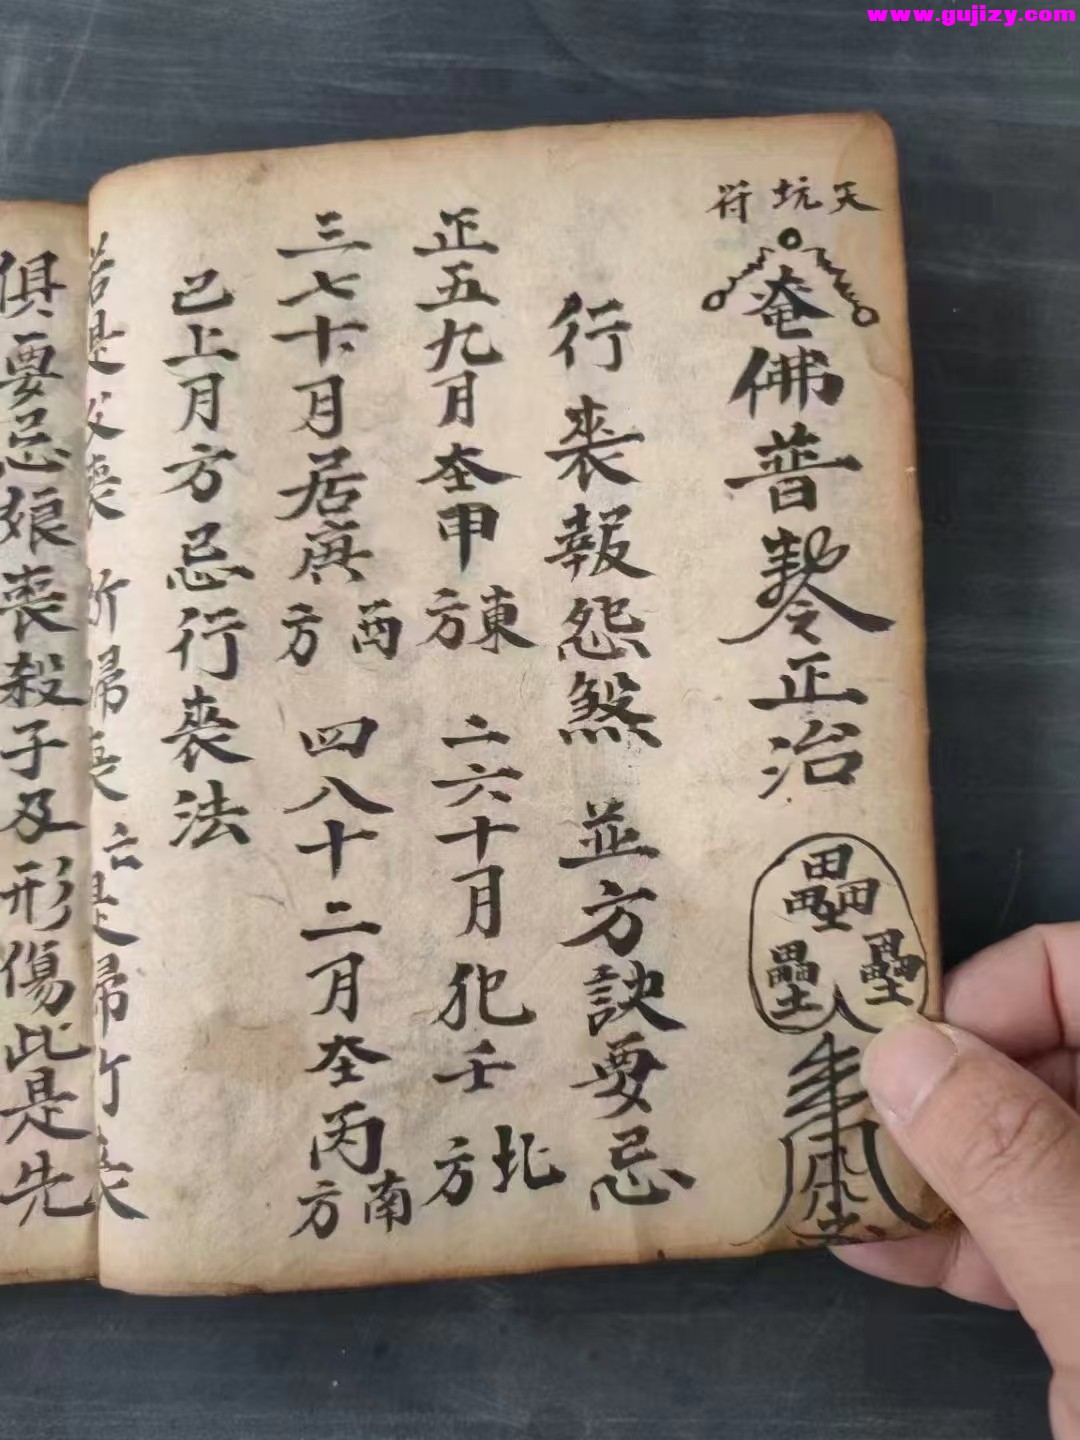 www.gujizy.com
天坑符
奄佛普勅令正治
行丧報怨煞 並方訣要忌
正五九月在甲東方 二六十月犯壬北方
三七十月居庚酉方 四八十二月在丙南方
已上月方忌行丧法
若是父丧 所歸丧
俱要忌娘丧殺子及形傷此是先